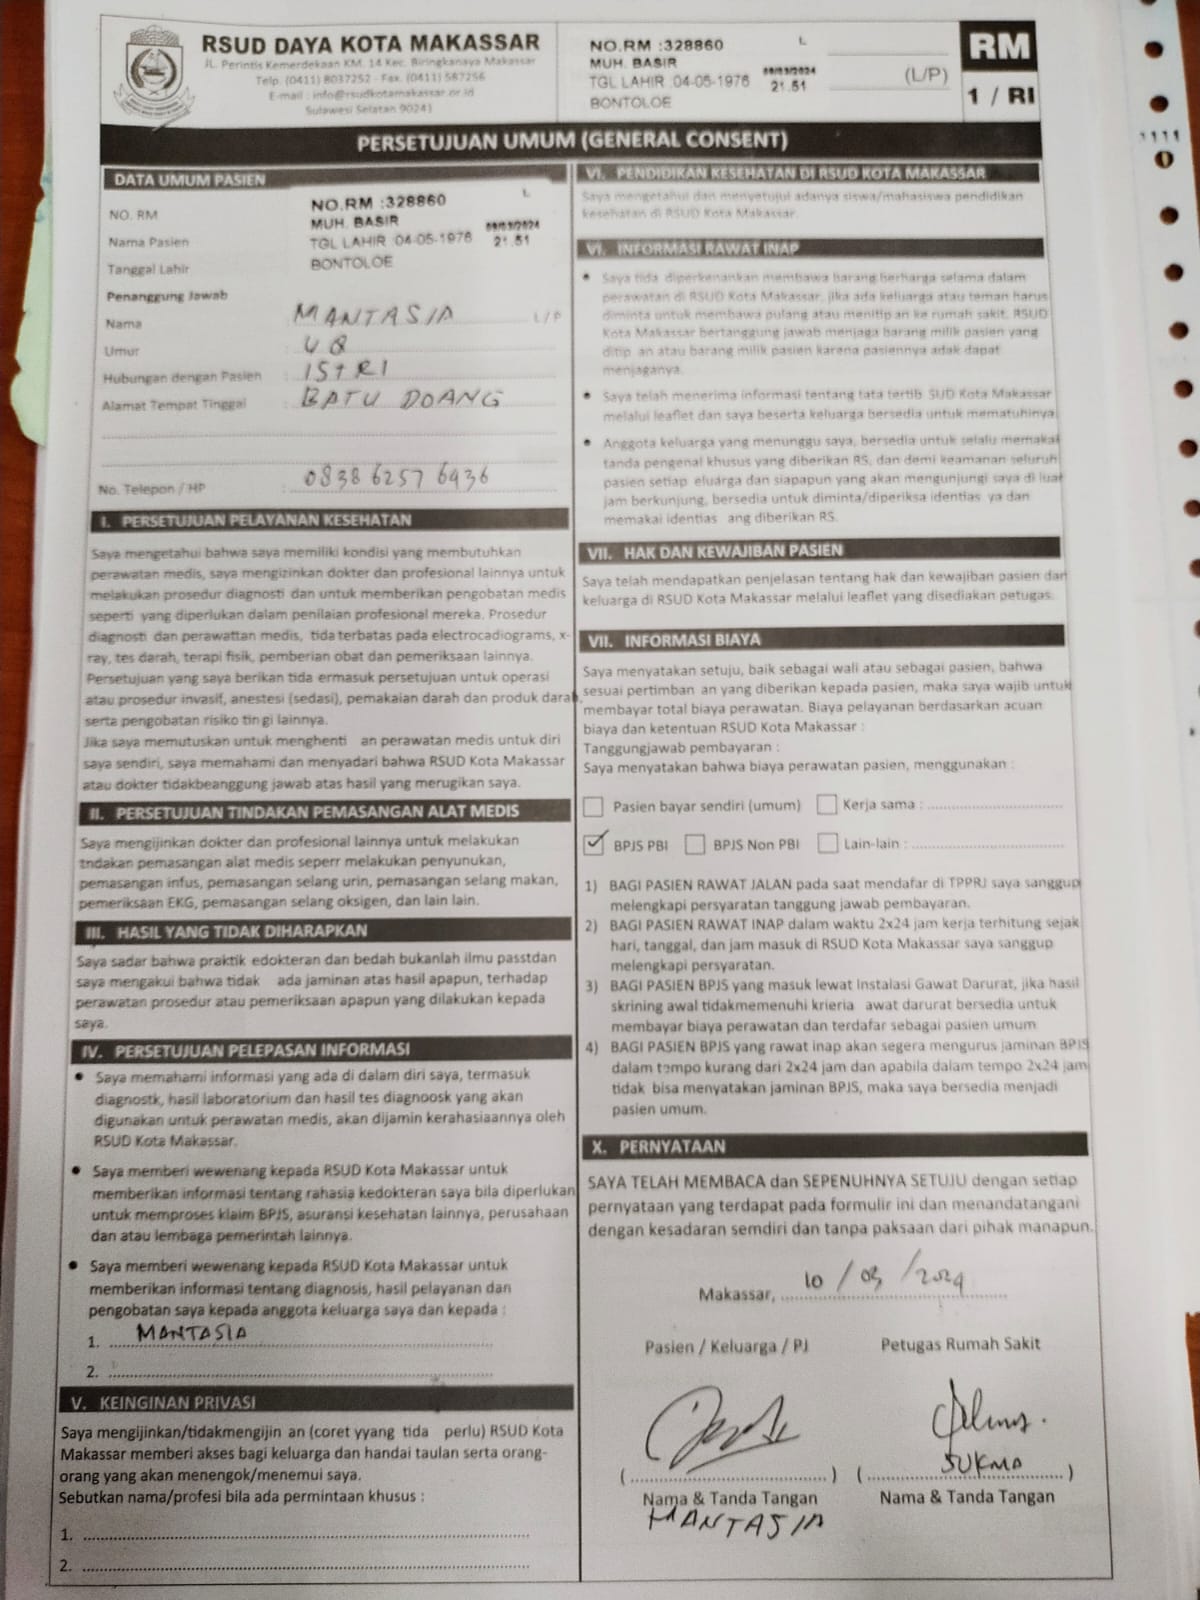 RSUD DAYA KOTA MAKASSAR
JL. Perintis Kemerdekaan KM. 14 Kec. Biringkanaya Makassar
Telp. (0411) 8037252 - Fax. (0411) 587256
E-mail : info@rsudkotamakassar.or.id
Sulawesi Selatan 90241
NO.RM :328860 L
MUH. BASIR
TGL LAHIR :04-05-1976 09/03/2024 21.51
BONTOLOE
(L/P)
RM
1 / RI
PERSETUJUAN UMUM (GENERAL CONSENT)
DATA UMUM PASIEN
NO. RM NO.RM :328860 L
Nama Pasien MUH. BASIR 09/03/2024
Tanggal Lahir TGL LAHIR :04-05-1976 21.51
BONTOLOE
Penanggung Jawab
Nama : MANTASIA L/P
Umur : 48
Hubungan dengan Pasien : ISTRI
Alamat Tempat Tinggal : BATU DOANG
No. Telepon / HP : 0838 6257 6936
I. PERSETUJUAN PELAYANAN KESEHATAN
Saya mengetahui bahwa saya memiliki kondisi yang membutuhkan
perawatan medis, saya mengizinkan dokter dan profesional lainnya untuk
melakukan prosedur diagnosti dan untuk memberikan pengobatan medis
seperti yang diperlukan dalam penilaian profesional mereka. Prosedur
diagnosti dan perawattan medis, tida terbatas pada electrocadiograms, x-
ray, tes darah, terapi fisik, pemberian obat dan pemeriksaan lainnya.
Persetujuan yang saya berikan tida ermasuk persetujuan untuk operasi
atau prosedur invasif, anestesi (sedasi), pemakaian darah dan produk darah,
serta pengobatan risiko tin gi lainnya.
Jika saya memutuskan untuk menghenti an perawatan medis untuk diri
saya sendiri, saya memahami dan menyadari bahwa RSUD Kota Makassar
atau dokter tidakbeanggung jawab atas hasil yang merugikan saya.
II. PERSETUJUAN TINDAKAN PEMASANGAN ALAT MEDIS
Saya mengijinkan dokter dan profesional lainnya untuk melakukan
tndakan pemasangan alat medis seperr melakukan penyunukan,
pemasangan infus, pemasangan selang urin, pemasangan selang makan,
pemeriksaan EKG, pemasangan selang oksigen, dan lain lain.
III. HASIL YANG TIDAK DIHARAPKAN
Saya sadar bahwa praktik edokteran dan bedah bukanlah ilmu passtdan
saya mengakui bahwa tidak ada jaminan atas hasil apapun, terhadap
perawatan prosedur atau pemeriksaan apapun yang dilakukan kepada
saya.
IV. PERSETUJUAN PELEPASAN INFORMASI
• Saya memahami informasi yang ada di dalam diri saya, termasuk
diagnostk, hasil laboratorium dan hasil tes diagnoosk yang akan
digunakan untuk perawatan medis, akan dijamin kerahasiaannya oleh
RSUD Kota Makassar.
• Saya memberi wewenang kepada RSUD Kota Makassar untuk
memberikan informasi tentang rahasia kedokteran saya bila diperlukan
untuk memproses klaim BPJS, asuransi kesehatan lainnya, perusahaan
dan atau lembaga pemerintah lainnya.
• Saya memberi wewenang kepada RSUD Kota Makassar untuk
memberikan informasi tentang diagnosis, hasil pelayanan dan
pengobatan saya kepada anggota keluarga saya dan kepada :
1. MANTASIA
2.
V. KEINGINAN PRIVASI
Saya mengijinkan/tidakmengijin an (coret yyang tida perlu) RSUD Kota
Makassar memberi akses bagi keluarga dan handai taulan serta orang-
orang yang akan menengok/menemui saya.
Sebutkan nama/profesi bila ada permintaan khusus :
1.
2.
VI. PENDIDIKAN KESEHATAN DI RSUD KOTA MAKASSAR
Saya mengetahui dan menyetujui adanya siswa/mahasiswa pendidikan
kesehatan di RSUD Kota Makassar.
VI. INFORMASI RAWAT INAP
• Saya tida diperkenankan membawa barang berharga selama dalam
perawatan di RSUD Kota Makassar, jika ada keluarga atau teman harus
diminta untuk membawa pulang atau menitip an ke rumah sakit. RSUD
Kota Makassar bertanggung jawab menjaga barang milik pasien yang
ditip an atau barang milik pasien karena pasiennya adak dapat
menjaganya.
• Saya telah menerima informasi tentang tata tertib SUD Kota Makassar
melalui leaflet dan saya beserta keluarga bersedia untuk mematuhinya
• Anggota keluarga yang menunggu saya, bersedia untuk selalu memakai
tanda pengenal khusus yang diberikan RS, dan demi keamanan seluruh
pasien setiap eluarga dan siapapun yang akan mengunjungi saya di luar
jam berkunjung, bersedia untuk diminta/diperiksa identias ya dan
memakai identias ang diberikan RS.
VII. HAK DAN KEWAJIBAN PASIEN
Saya telah mendapatkan penjelasan tentang hak dan kewajiban pasien dan
keluarga di RSUD Kota Makassar melalui leaflet yang disediakan petugas.
VII. INFORMASI BIAYA
Saya menyatakan setuju, baik sebagai wali atau sebagai pasien, bahwa
sesuai pertimban an yang diberikan kepada pasien, maka saya wajib untuk
membayar total biaya perawatan. Biaya pelayanan berdasarkan acuan
biaya dan ketentuan RSUD Kota Makassar :
Tanggungjawab pembayaran :
Saya menyatakan bahwa biaya perawatan pasien, menggunakan :
Pasien bayar sendiri (umum) Kerja sama :
✓ BPJS PBI BPJS Non PBI Lain-lain :
1) BAGI PASIEN RAWAT JALAN pada saat mendafar di TPPRJ saya sanggup
melengkapi persyaratan tanggung jawab pembayaran.
2) BAGI PASIEN RAWAT INAP dalam waktu 2x24 jam kerja terhitung sejak
hari, tanggal, dan jam masuk di RSUD Kota Makassar saya sanggup
melengkapi persyaratan.
3) BAGI PASIEN BPJS yang masuk lewat Instalasi Gawat Darurat, jika hasil
skrining awal tidakmemenuhi krieria awat darurat bersedia untuk
membayar biaya perawatan dan terdafar sebagai pasien umum
4) BAGI PASIEN BPJS yang rawat inap akan segera mengurus jaminan BPJS
dalam tempo kurang dari 2x24 jam dan apabila dalam tempo 2x24 jam
tidak bisa menyatakan jaminan BPJS, maka saya bersedia menjadi
pasien umum.
X. PERNYATAAN
SAYA TELAH MEMBACA dan SEPENUHNYA SETUJU dengan setiap
pernyataan yang terdapat pada formulir ini dan menandatangani
dengan kesadaran semdiri dan tanpa paksaan dari pihak manapun.
Makassar, 10 / 03 / 2024
Pasien / Keluarga / PJ Petugas Rumah Sakit
SUKMA
Nama & Tanda Tangan Nama & Tanda Tangan
MANTASIA